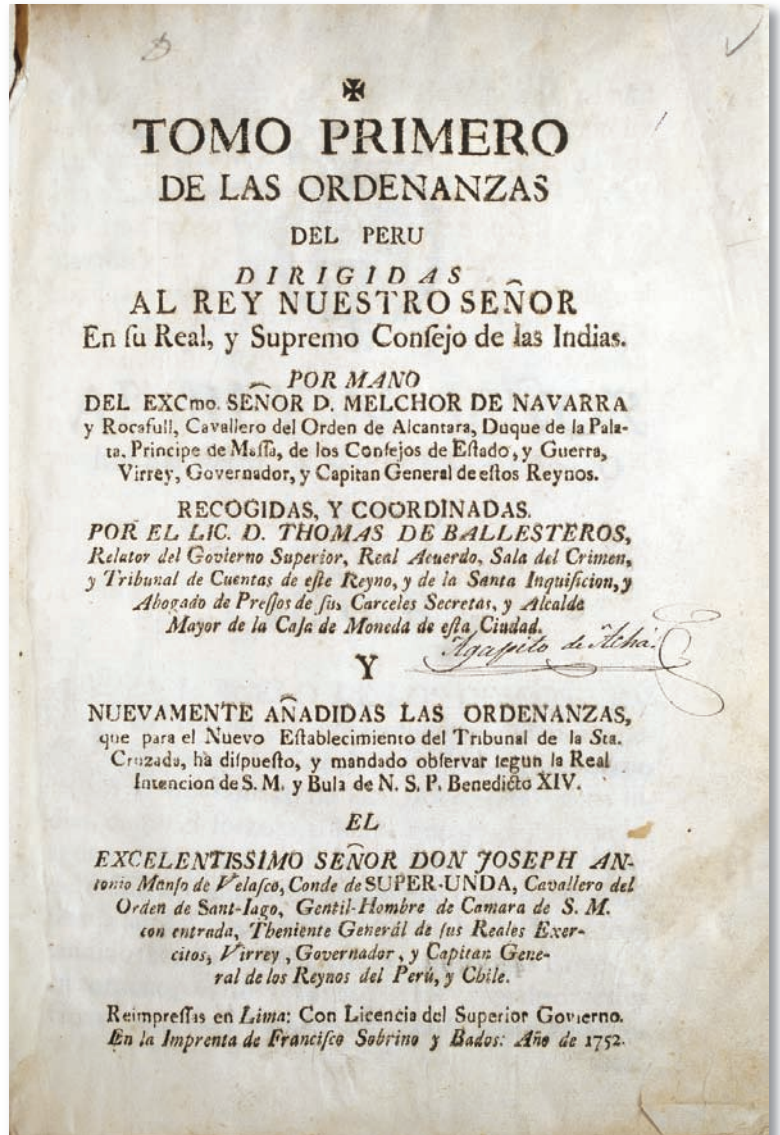 ✠
TOMO PRIMERO
DE LAS ORDENANZAS
DEL PERU
DIRIGIDAS
AL REY NUESTRO SEÑOR
En ſu Real, y Supremo Conſejo de las Indias.
POR MANO
DEL EXCmo. SEÑOR D. MELCHOR DE NAVARRA
y Rocafull, Cavallero del Orden de Alcantara, Duque de la Pala-
ta, Principe de Maſſa, de los Conſejos de Eſtado, y Guerra,
Virrey, Governador, y Capitan General de eſtos Reynos.
RECOGIDAS, Y COORDINADAS.
POR EL LIC. D. THOMAS DE BALLESTEROS,
Relator del Govierno Superior, Real Acuerdo, Sala del Crimen,
y Tribunal de Cuentas de eſte Reyno, y de la Santa Inquiſicion, y
Abogado de Preſſos de ſus Carceles Secretas, y Alcalde
Mayor de la Caſa de Moneda de eſta Ciudad.
Agapito de Achá.
Y
NUEVAMENTE AÑADIDAS LAS ORDENANZAS,
que para el Nuevo Eſtablecimiento del Tribunal de la Sta.
Cruzada, ha diſpueſto, y mandado obſervar ſegun la Real
Intencion de S. M. y Bula de N. S. P. Benedicto XIV.
EL
EXCELENTISSIMO SEÑOR DON JOSEPH AN-
tonio Manſo de Velaſco, Conde de SUPER-UNDA, Cavallero del
Orden de Sant-Iago, Gentil-Hombre de Camara de S. M.
con entrada, Theniente Generál de ſus Reales Exer-
citos, Virrey, Governador, y Capitan Gene-
ral de los Reynos del Perú, y Chile.
Reimpreſſas en Lima: Con Licencia del Superior Govierno.
En la Imprenta de Franciſco Sobrino y Bados: Año de 1752.